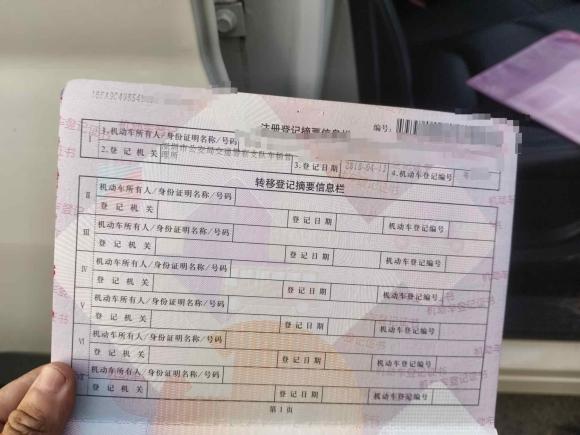 注册登记摘要信息栏
编号:
I
1.机动车所有人/身份证明名称/号码
2.登记机关 深圳市公安局交通警察支队车辆管理所 3.登记日期 4.机动车登记编号
转移登记摘要信息栏
II 机动车所有人/身份证明名称/号码
登记机关 登记日期 机动车登记编号
III 机动车所有人/身份证明名称/号码
登记机关 登记日期 机动车登记编号
IV 机动车所有人/身份证明名称/号码
登记机关 登记日期 机动车登记编号
V 机动车所有人/身份证明名称/号码
登记机关 登记日期 机动车登记编号
VI 机动车所有人/身份证明名称/号码
登记机关 登记日期 机动车登记编号
机动车所有人/身份证明名称/号码
登记机关 登记日期 机动车登记编号
第1页